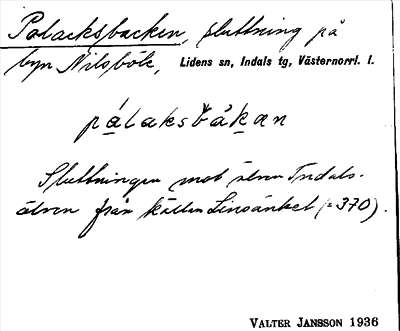 Polacksbacken, sluttning på
byn Nilsböle, Lidens sn, Indals tg, Västernorrl. l.
pálaksbákan
Sluttningen mot älven Indals-
älven från källan Linsänket (=370).
VALTER JANSSON 1936